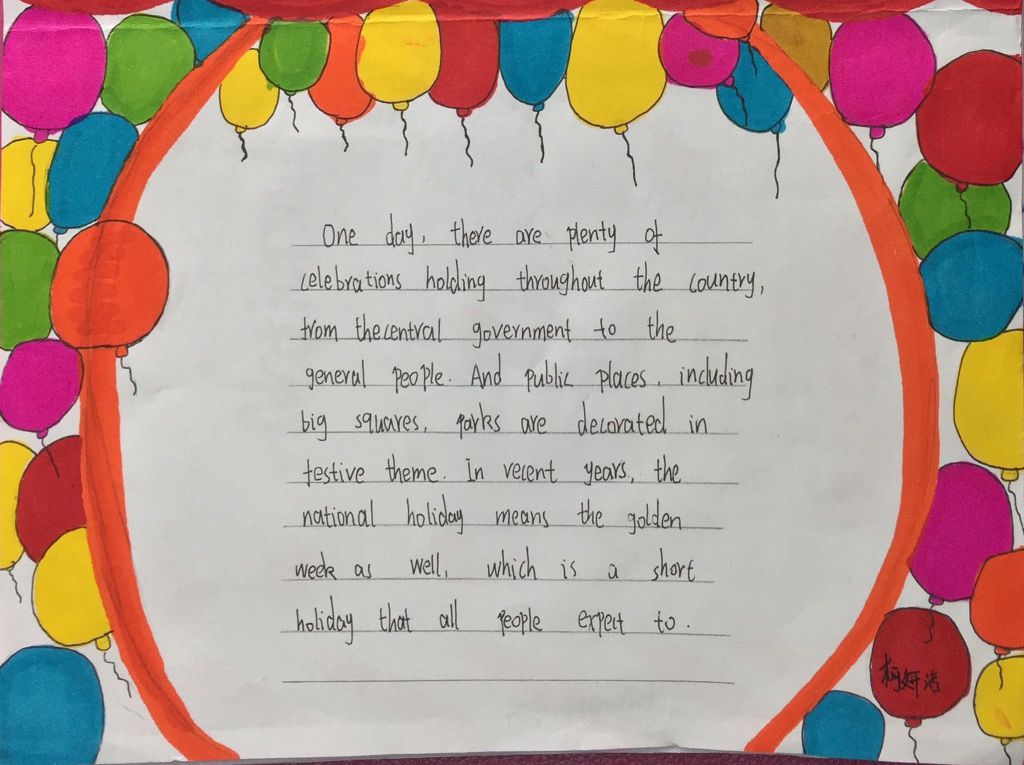 One day, there are plenty of
celebrations holding throughout the country,
from the central government to the
general people. And public places, including
big squares, parks are decorated in
festive theme. In recent years, the
national holiday means the golden
week as well, which is a short
holiday that all people expect to.